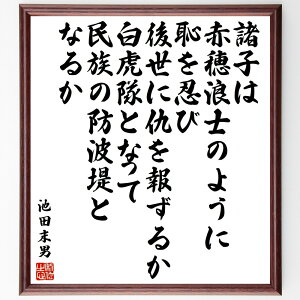 諸子は
赤穂浪士のように
恥を忍び
後世に仇を報ずるか
白虎隊となって
民族の防波堤と
なるか
池田末男